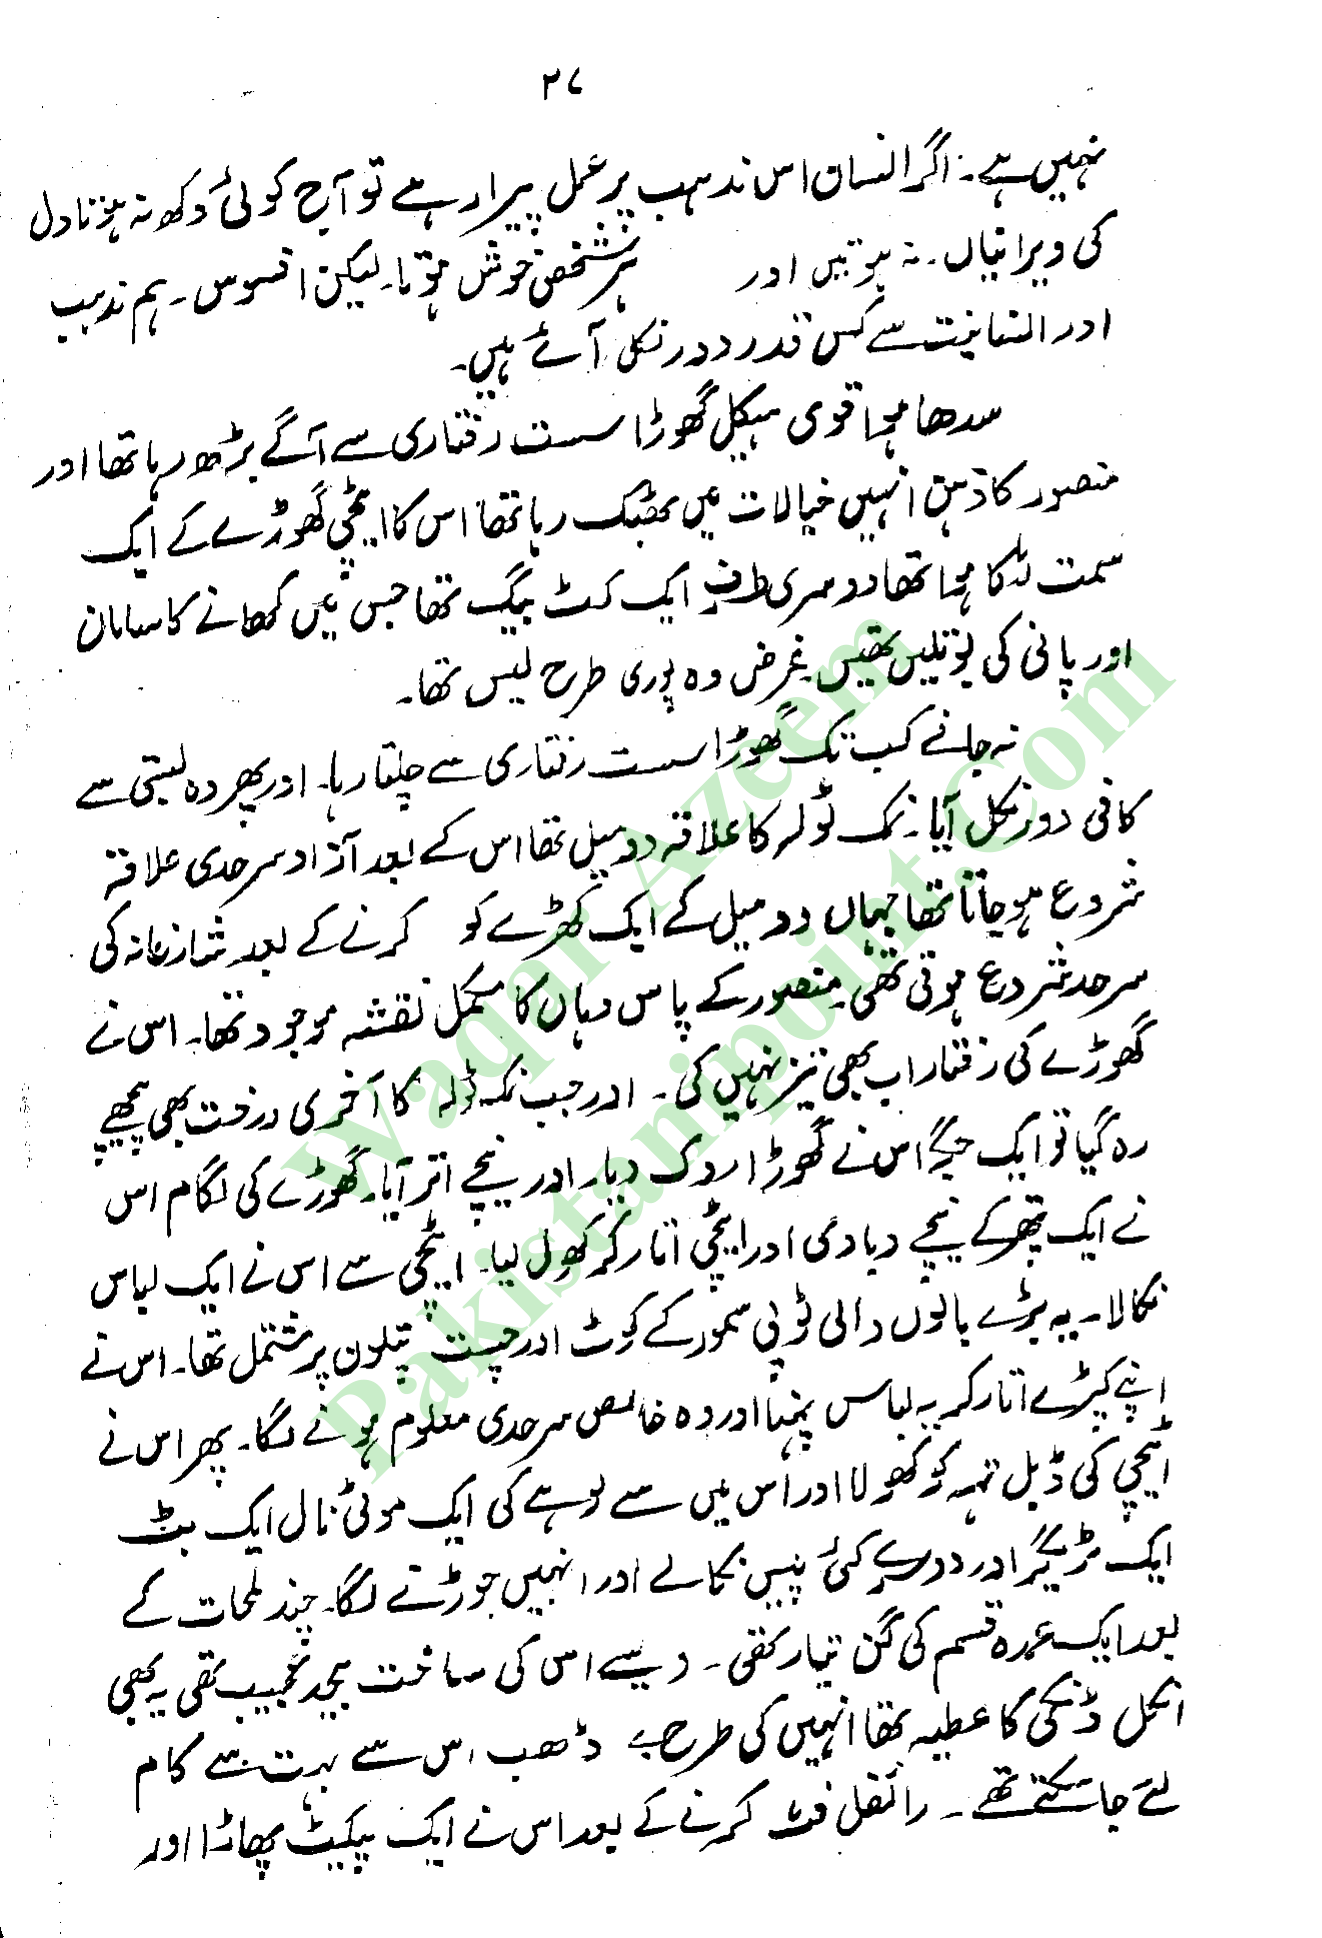 ۲۷
نہیں ہے۔ اگر انسان اس مذہب پر عمل پیرا رہے تو آج کوئی دکھ نہ ہوتا دل
کی ویرانیاں۔ نہ ہوتیں اور ہر شخص خوش ہوتا۔ لیکن افسوس۔ ہم مذہب
اور انسانیت سے کس قدر دور نکل آئے ہیں۔
سدھا ہوا قوی ہیکل گھوڑا سست رفتاری سے آگے بڑھ رہا تھا اور
منصور کا ذہن انہیں خیالات میں بھٹک رہا تھا اس کا اٹیچی گھوڑے کے ایک
سمت لٹکا ہوا تھا دوسری طرف ایک کٹ بیگ تھا جس میں کھانے کا سامان
اور پانی کی بوتلیں تھیں غرض وہ پوری طرح لیس تھا۔
نہ جانے کب تک گھوڑا سست رفتاری سے چلتا رہا۔ اور پھر وہ بستی سے
کافی دور نکل آیا۔ نمک ٹولہ کا علاقہ دو میل تھا اس کے بعد آزاد سرحدی علاقہ
شروع ہو جاتا تھا جہاں دو میل کے ایک ٹکڑے کو کرنے کے بعد شازمانہ کی
سرحد شروع ہوتی تھی۔ منصور کے پاس وہاں کا مکمل نقشہ موجود تھا۔ اس نے
گھوڑے کی رفتار اب بھی تیز نہیں کی۔ اور جب نمک ٹولہ کا آخری درخت بھی پیچھے
رہ گیا تو ایک جگہ اس نے گھوڑا روک دیا۔ اور نیچے اتر آیا۔ گھوڑے کی لگام اس
نے ایک پتھر کے نیچے دبا دی اور اٹیچی اتار کر کھول لیا۔ اٹیچی سے اس نے ایک لباس
نکالا۔ یہ بڑے بالوں والی ٹوپی سمور کے کوٹ اور چست پتلون پر مشتمل تھا۔ اس نے
اپنے کپڑے اتار کر یہ لباس پہنا اور وہ خالص سرحدی معلوم ہونے لگا۔ پھر اس نے
اٹیچی کی ڈبل تہہ کو کھولا اور اس میں سے لوہے کی ایک موٹی نال ایک بٹ
ایک ٹریگر اور دوسرے کئی پیس نکالے اور انہیں جوڑنے لگا۔ چند لمحات کے
بعد ایک عمدہ قسم کی گن تیار تھی۔ ویسے اس کی ساخت بیحد عجیب تھی یہ بھی
انکل ڈنکی کا عطیہ تھا انہیں کی طرح بے ڈھب اس سے بہت سے کام
لئے جا سکتے تھے۔ رائفل فٹ کرنے کے بعد اس نے ایک پیکیٹ پھاڑا اور
Waqar Azeem
Pakistanipoint.Com